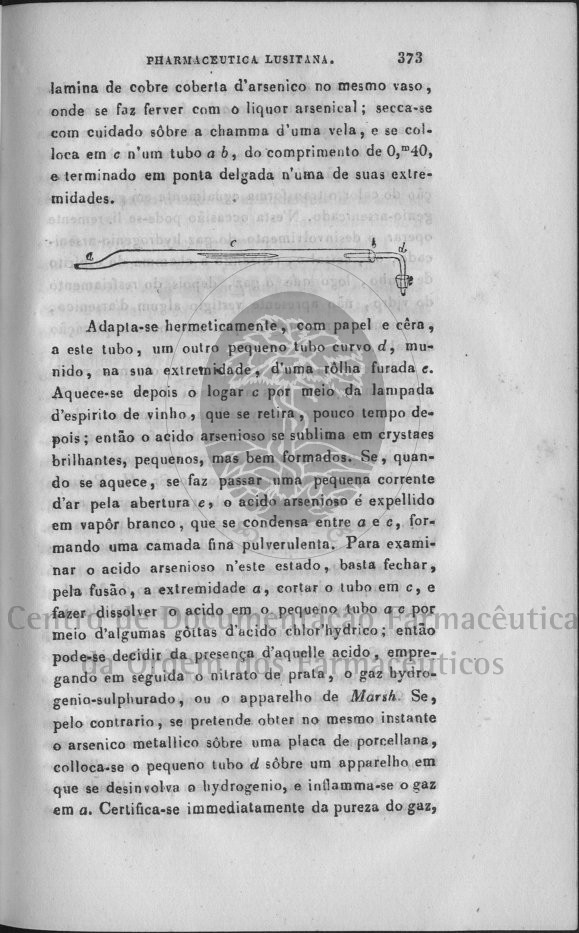 PHARMACEUTICA LUSITANA. 373
lamina de cobre coberta d'arsenico no mesmo vaso,
onde se faz ferver com o liquor arsenical; secca-se
com cuidado sôbre a chamma d'uma vela, e se col-
loca em c n'um tubo a b, do comprimento de 0,ᵐ40,
e terminado em ponta delgada n'uma de suas extre-
midades.
a c b d e
Adapta-se hermeticamente, com papel e cêra,
a este tubo, um outro pequeno tubo curvo d, mu-
nido, na sua extremidade, d'uma rôlha furada e.
Aquece-se depois o logar c por meio da lampada
d'espirito de vinho, que se retira, pouco tempo de-
pois; então o acido arsenioso se sublima em crystaes
brilhantes, pequenos, mas bem formados. Se, quan-
do se aquece, se faz passar uma pequena corrente
d'ar pela abertura e, o acido arsenioso é expellido
em vapôr branco, que se condensa entre a e c, for-
mando uma camada fina pulverulenta. Para exami-
nar o acido arsenioso n'este estado, basta fechar,
pela fusão, a extremidade a, cortar o tubo em c, e
fazer dissolver o acido em o pequeno tubo a c por
meio d'algumas gôttas d'acido chlor'hydrico; então
pode-se decidir da presença d'aquelle acido, empre-
gando em seguida o nitrato de prata, o gaz hydro-
genio-sulphurado, ou o apparelho de Marsh. Se,
pelo contrario, se pretende obter no mesmo instante
o arsenico metallico sôbre uma placa de porcellana,
colloca-se o pequeno tubo d sôbre um apparelho em
que se desinvolva o hydrogenio, e inflamma-se o gaz
em a. Certifica-se immediatamente da pureza do gaz,
Centro de Documentação Farmacêutica
da Ordem dos Farmacêuticos